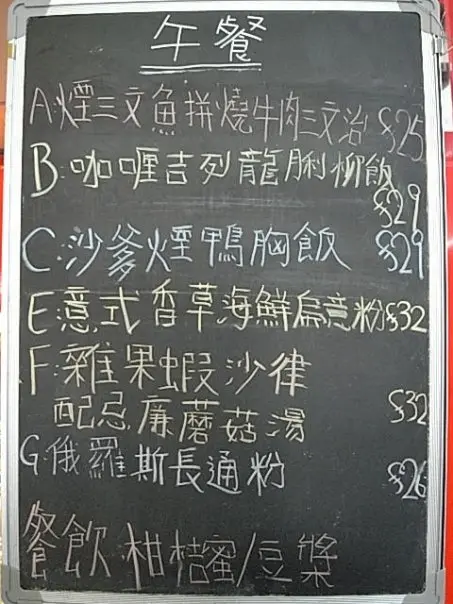 午餐
A:煙三文魚拼燒牛肉三文治 $25
B:咖喱吉列龍脷柳飯
$29
C:沙爹煙鴨胸飯 $29
E:意式香草海鮮烏意粉 $32
F:雜果蝦沙律
配忌廉蘑菇湯 $32
G:俄羅斯長通粉 $26
餐飲:柑桔蜜/豆漿